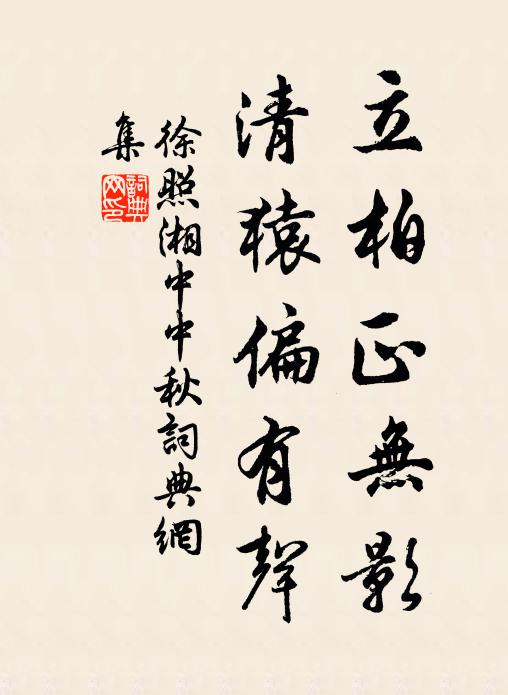 立柏正無影
清猿偏有聲
徐照湘中中秋詞典網
集
詞典網印